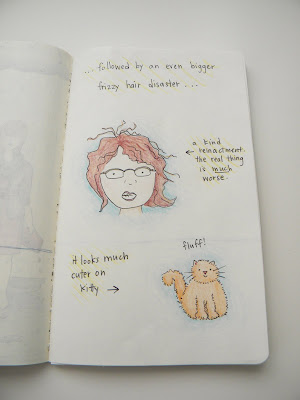 ... followed by an even bigger
frizzy hair disaster ...
a kind
reinactment.
← the real thing
is much
worse.
fluff!
It looks much
cuter on
Kitty →